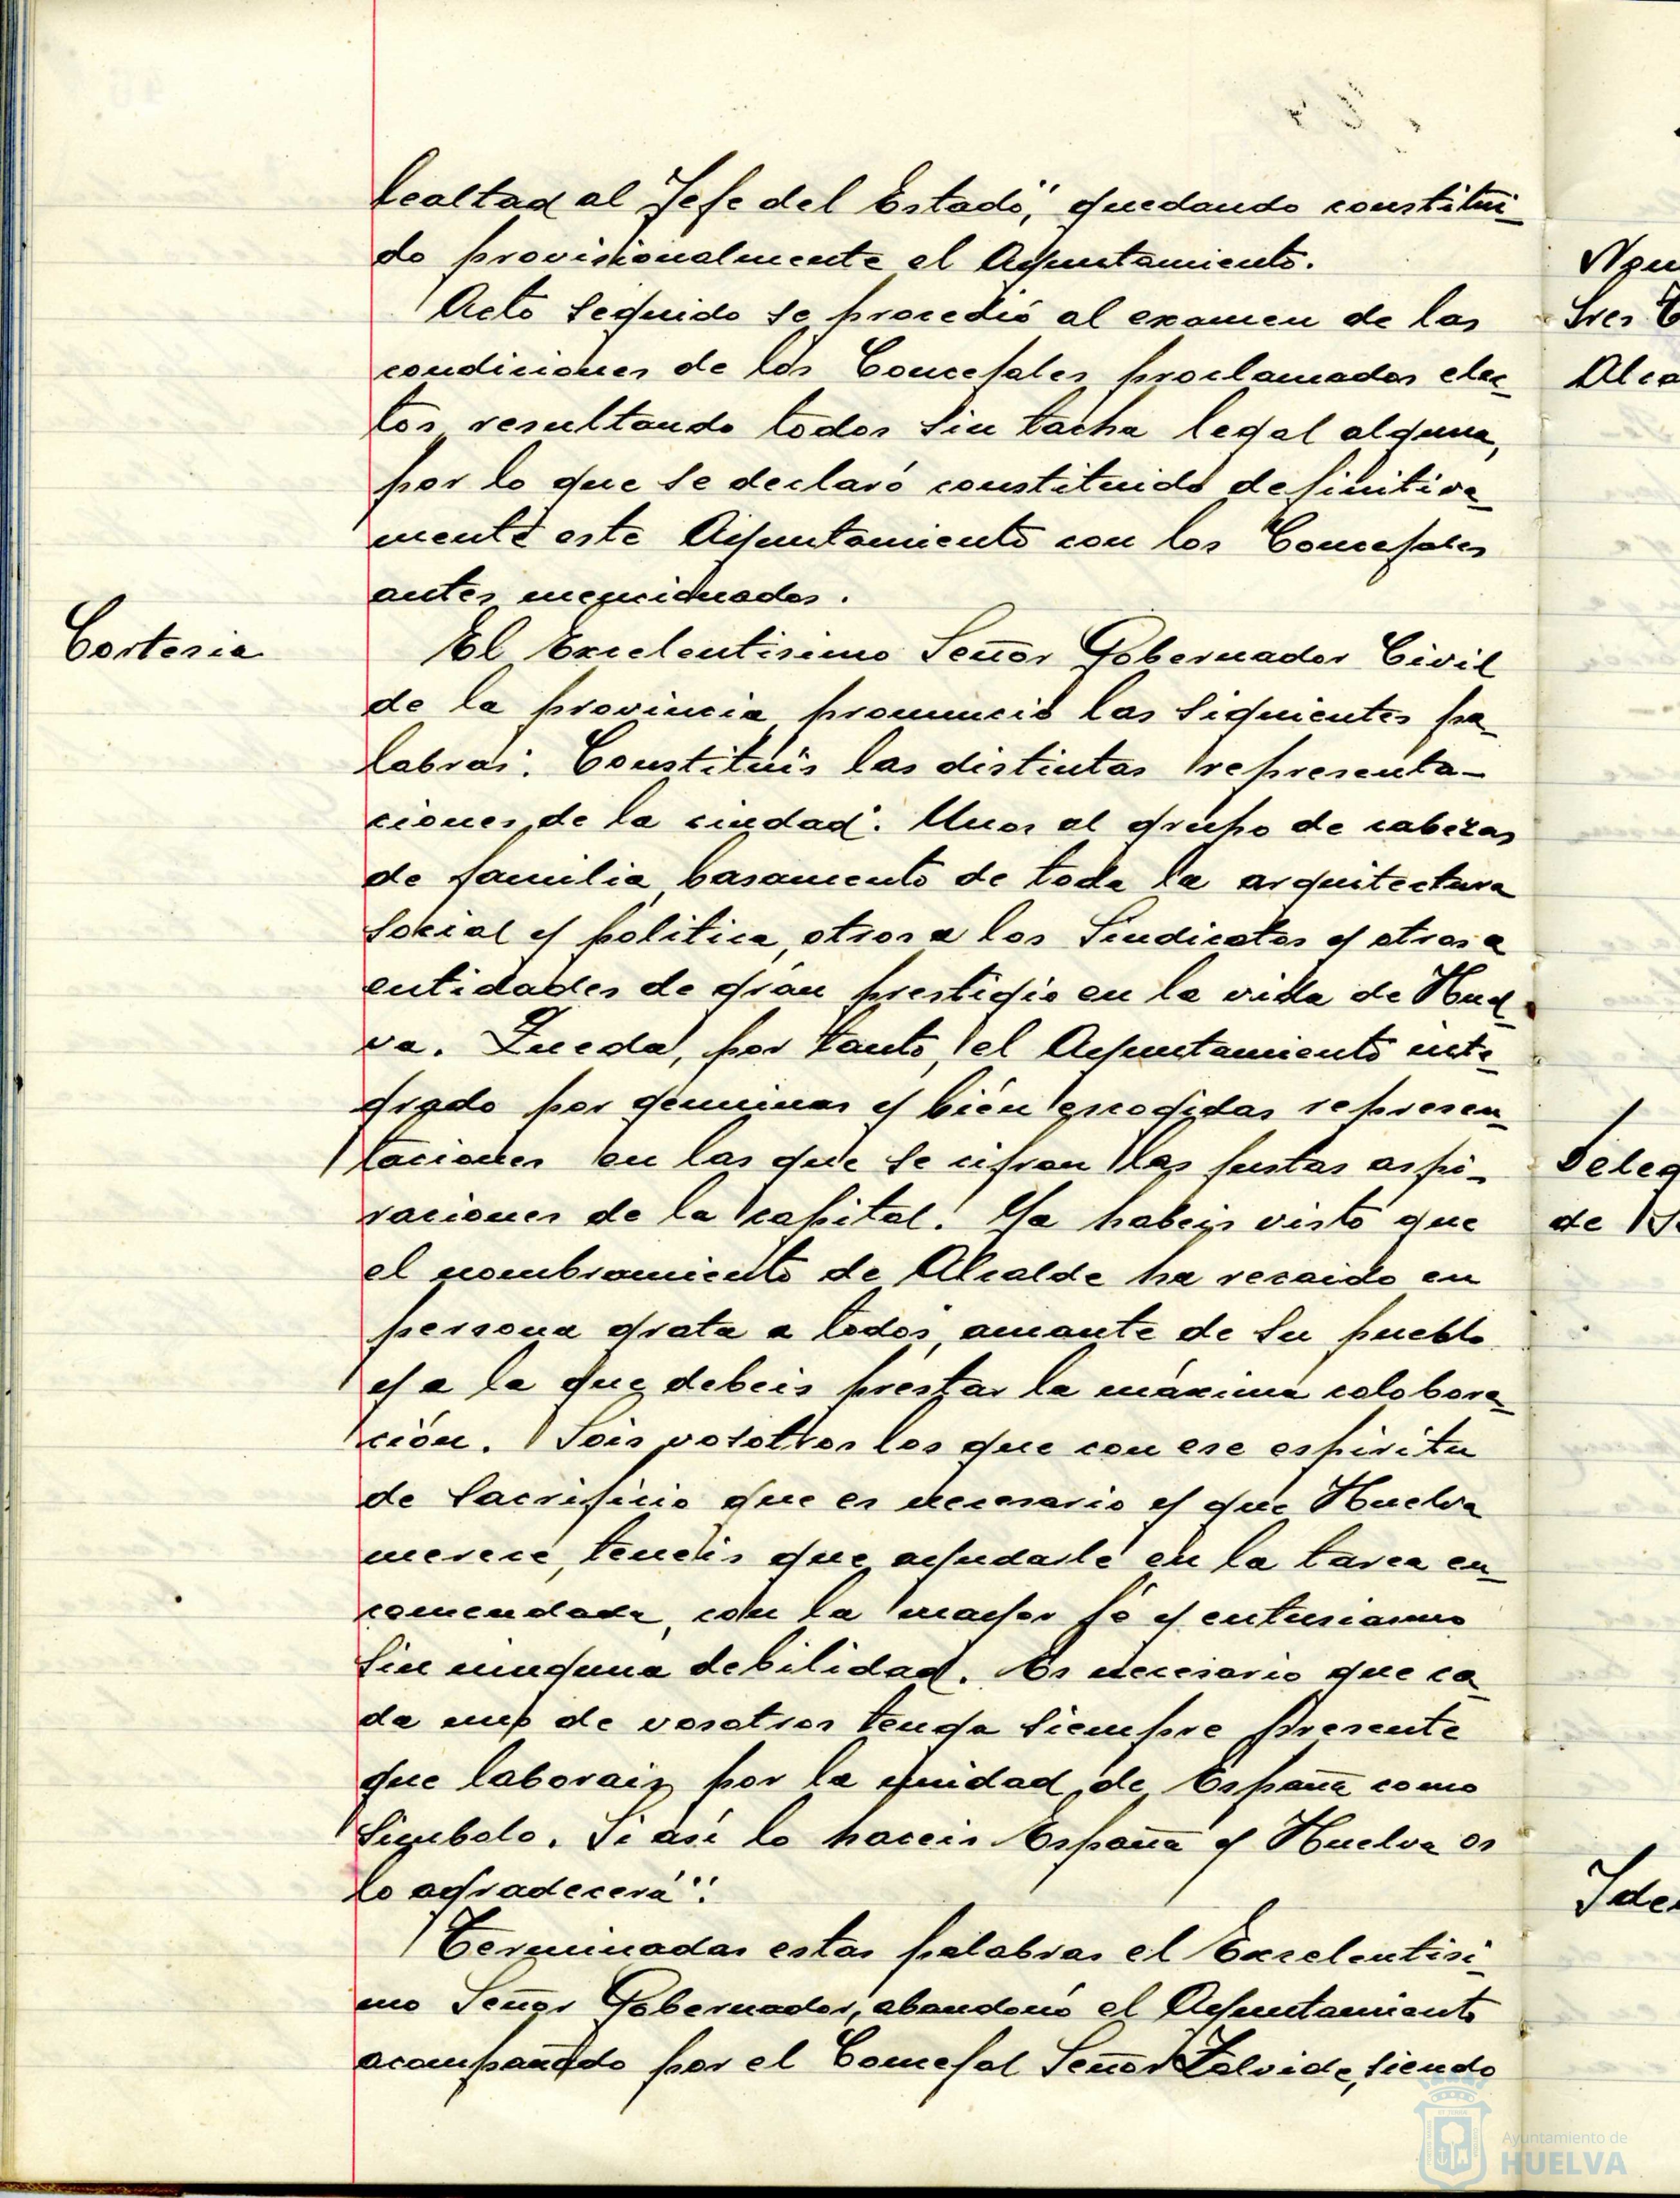 lealtad al Jefe del Estado", quedando constitui_
do provisionalmente el Ayuntamiento.
Acto seguido se procedió al examen de las
condiciones de los Concejales proclamados elec_
tos, resultando todos sin tacha legal alguna,
por lo que se declaró constituido definitiva_
mente este Ayuntamiento con los Concejales
antes mencionados.
Cortesia
El Excelentisimo Señor Gobernador Civil
de la provincia pronunció las siguientes pa_
labras: Constituis las distintas representa-
ciones de la ciudad. Unos al grupo de cabezas
de familia, basamento de toda la arquitectura
social y politica, otros a los Sindicatos y otros a
entidades de gran prestigio en la vida de Huel
va. Queda, por tanto, el Ayuntamiento inte_
grado por genuinas y bién escogidas represen_
taciones en las que se cifran las justas aspi_
raciones de la capital. Ya habeis visto que
el nombramiento de Alcalde ha recaido en
persona grata a todos, amante de su pueblo
y a la que debeis prestar la máxima colabora_
ción. Sois vosotros los que con ese espiritu
de sacrificio que es necesario y que Huelva
merece, teneis que ayudarle en la tarea en_
comendada, con la mayor fé y entusiasmo
sin ninguna debilidad. Es necesario que ca_
da uno de vosotros tenga siempre presente
que laborais por la unidad de España como
simbolo. Si asi lo haceis España y Huelva os
lo agradecerá".
Terminadas estas palabras el Excelentisi_
mo Señor Gobernador, abandonó el Ayuntamiento
acompañado por el Concejal Señor Zalvide, siendo
Sres
Deleg
de
Ayuntamiento de
HUELVA